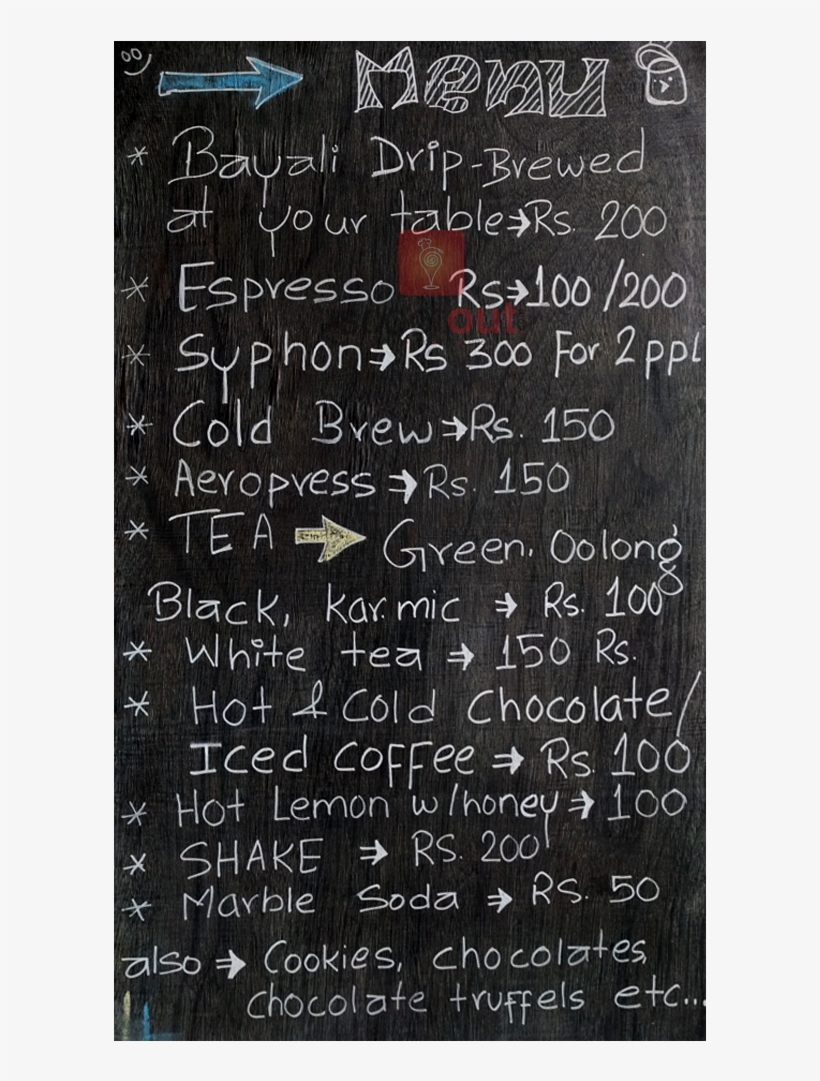 Menu
* Bayali Drip-Brewed
at your table→Rs. 200
* Espresso Rs→100/200
out
* Syphon→Rs 300 For 2 ppl
* Cold Brew→Rs. 150
* Aeropress→Rs. 150
* TEA → Green, Oolong
Black, karmic → Rs. 100
* White tea → 150 Rs.
* Hot & Cold Chocolate/
Iced Coffee → Rs. 100
* Hot Lemon w/honey→100
* SHAKE → RS. 200
* Marble Soda → RS. 50
also → Cookies, chocolates,
chocolate truffels etc...